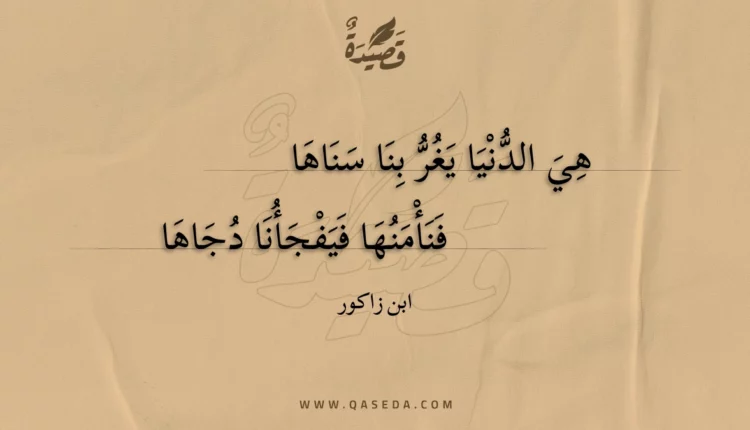 قَصِيدَةٌ
هِيَ الدُّنْيَا يَغُرُّ بِنَا سَنَاهَا
فَنَأْمَنُهَا فَيَفْجَأُنَا دُجَاهَا
ابن زاكور
WWW.QASEDA.COM